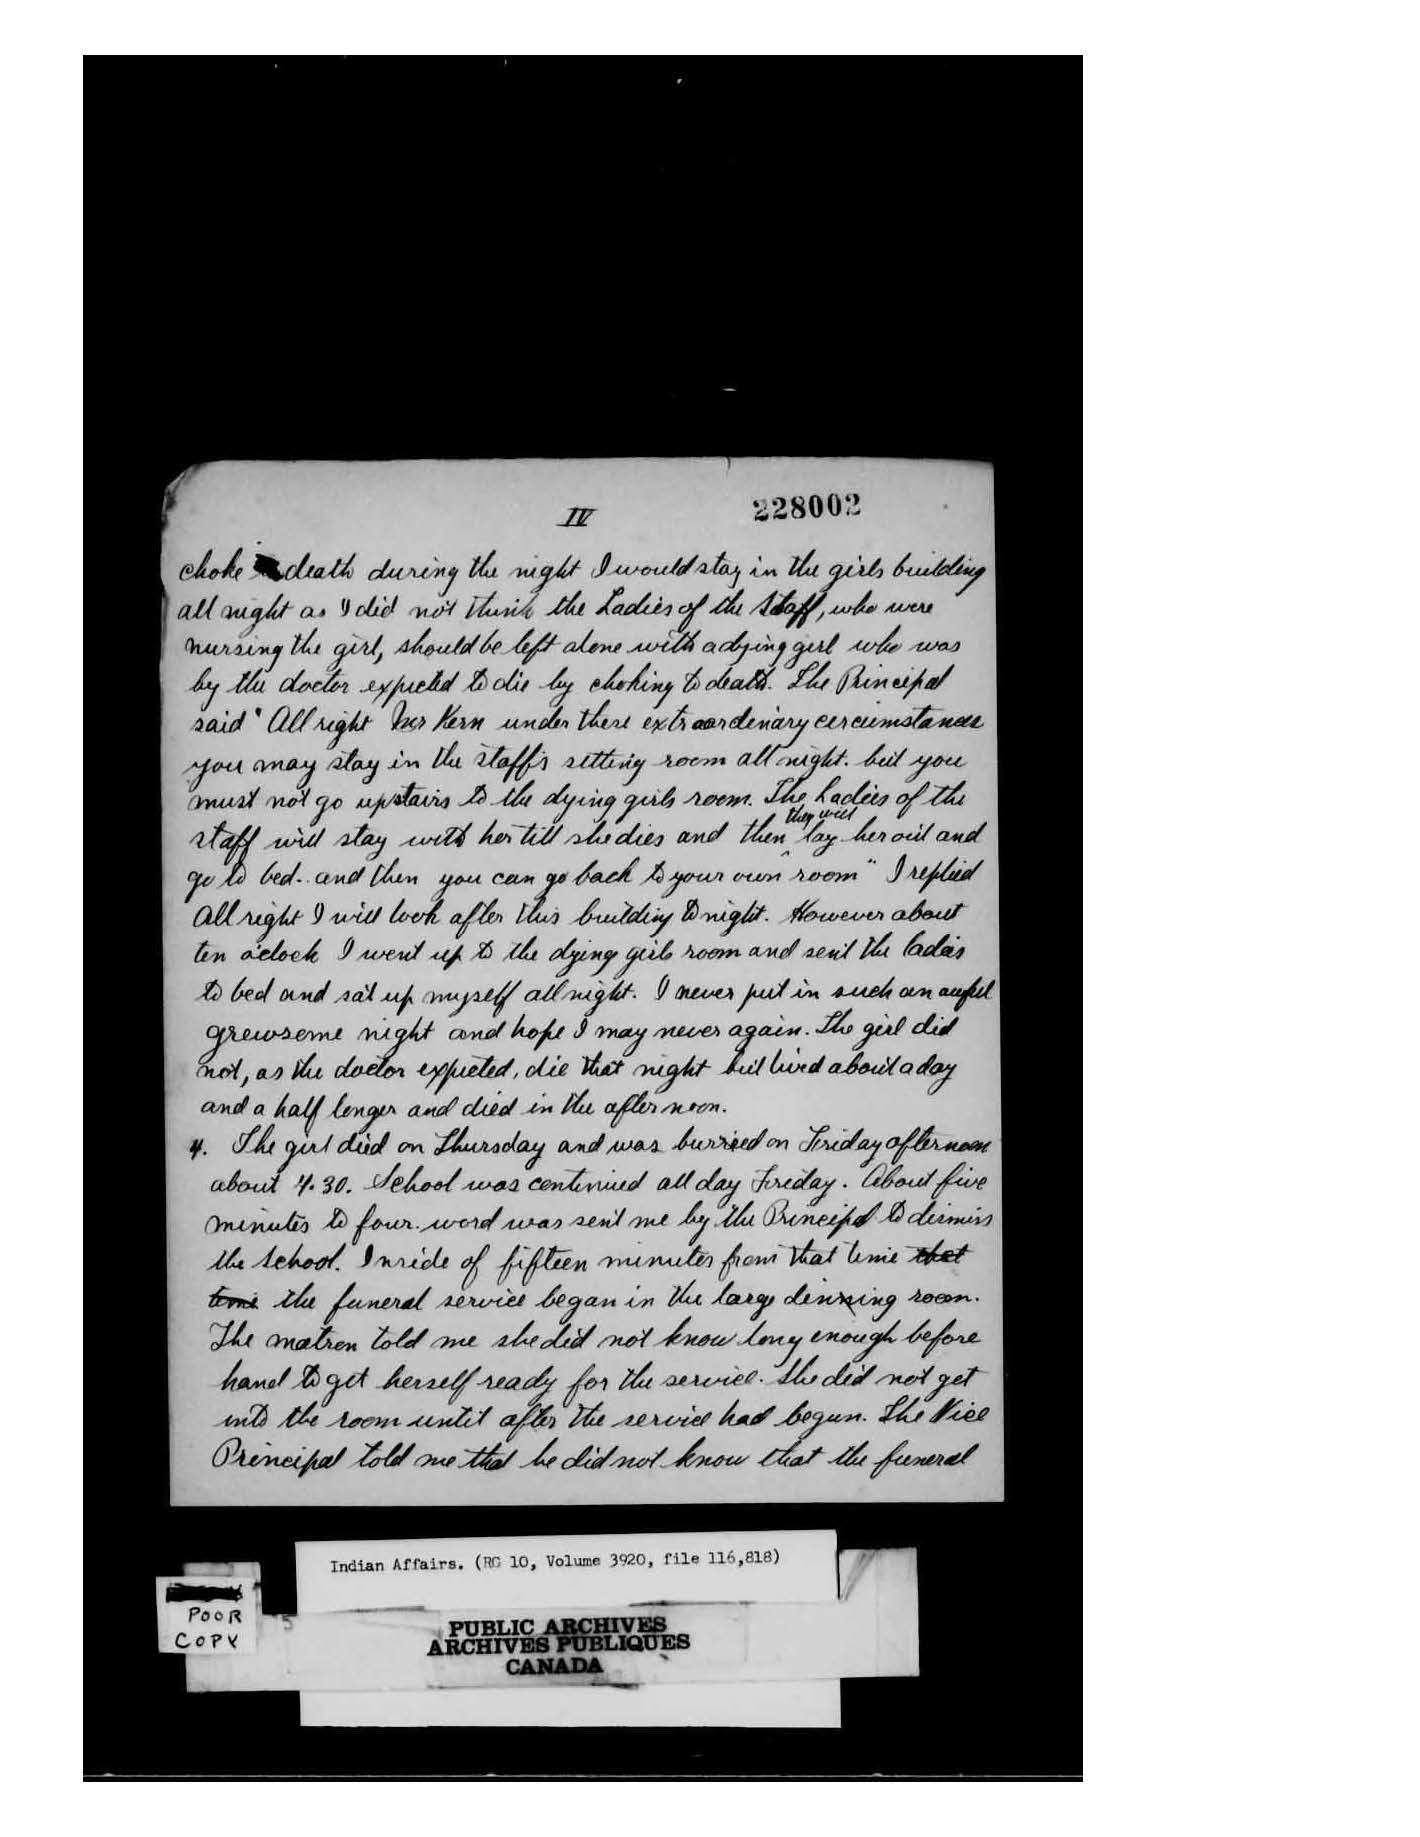 IV
228002
choke death during the night I would stay in the girls building
all night as I did not think the Ladies of the Staff, who were
nursing the girl, should be left alone with a dying girl who was
by the doctor expected to die by choking to death. The Principal
said "All right Mr Kern under these extraordinary circumstances
you may stay in the staff's sitting room all night. but you
must not go upstairs to the dying girls room. The Ladies of the
they will
staff will stay with her till she dies and then lay her out and
go to bed. and then you can go back to your own room" I replied
All right I will look after this building to night. However about
ten o'clock I went up to the dying girls room and sent the ladies
to bed and sat up myself all night. I never put in such an awful
grewsome night and hope I may never again. The girl did
not, as the doctor expected, die that night but lived about a day
and a half longer and died in the afternoon.
4. The girl died on Thursday and was burried on Friday afternoon
about 4.30. School was continued all day Friday. About five
minutes to four word was sent me by the Principal to dismiss
the School. Inside of fifteen minutes from that time that
time the funeral service began in the large dinning room.
The matron told me she did not know long enough before
hand to get herself ready for the service. She did not get
into the room until after the service had begun. The Vice
Principal told me that he did not know that the funeral
Indian Affairs. (RG 10, Volume 3920, file 116,818)
POOR
COPY
PUBLIC ARCHIVES
ARCHIVES PUBLIQUES
CANADA